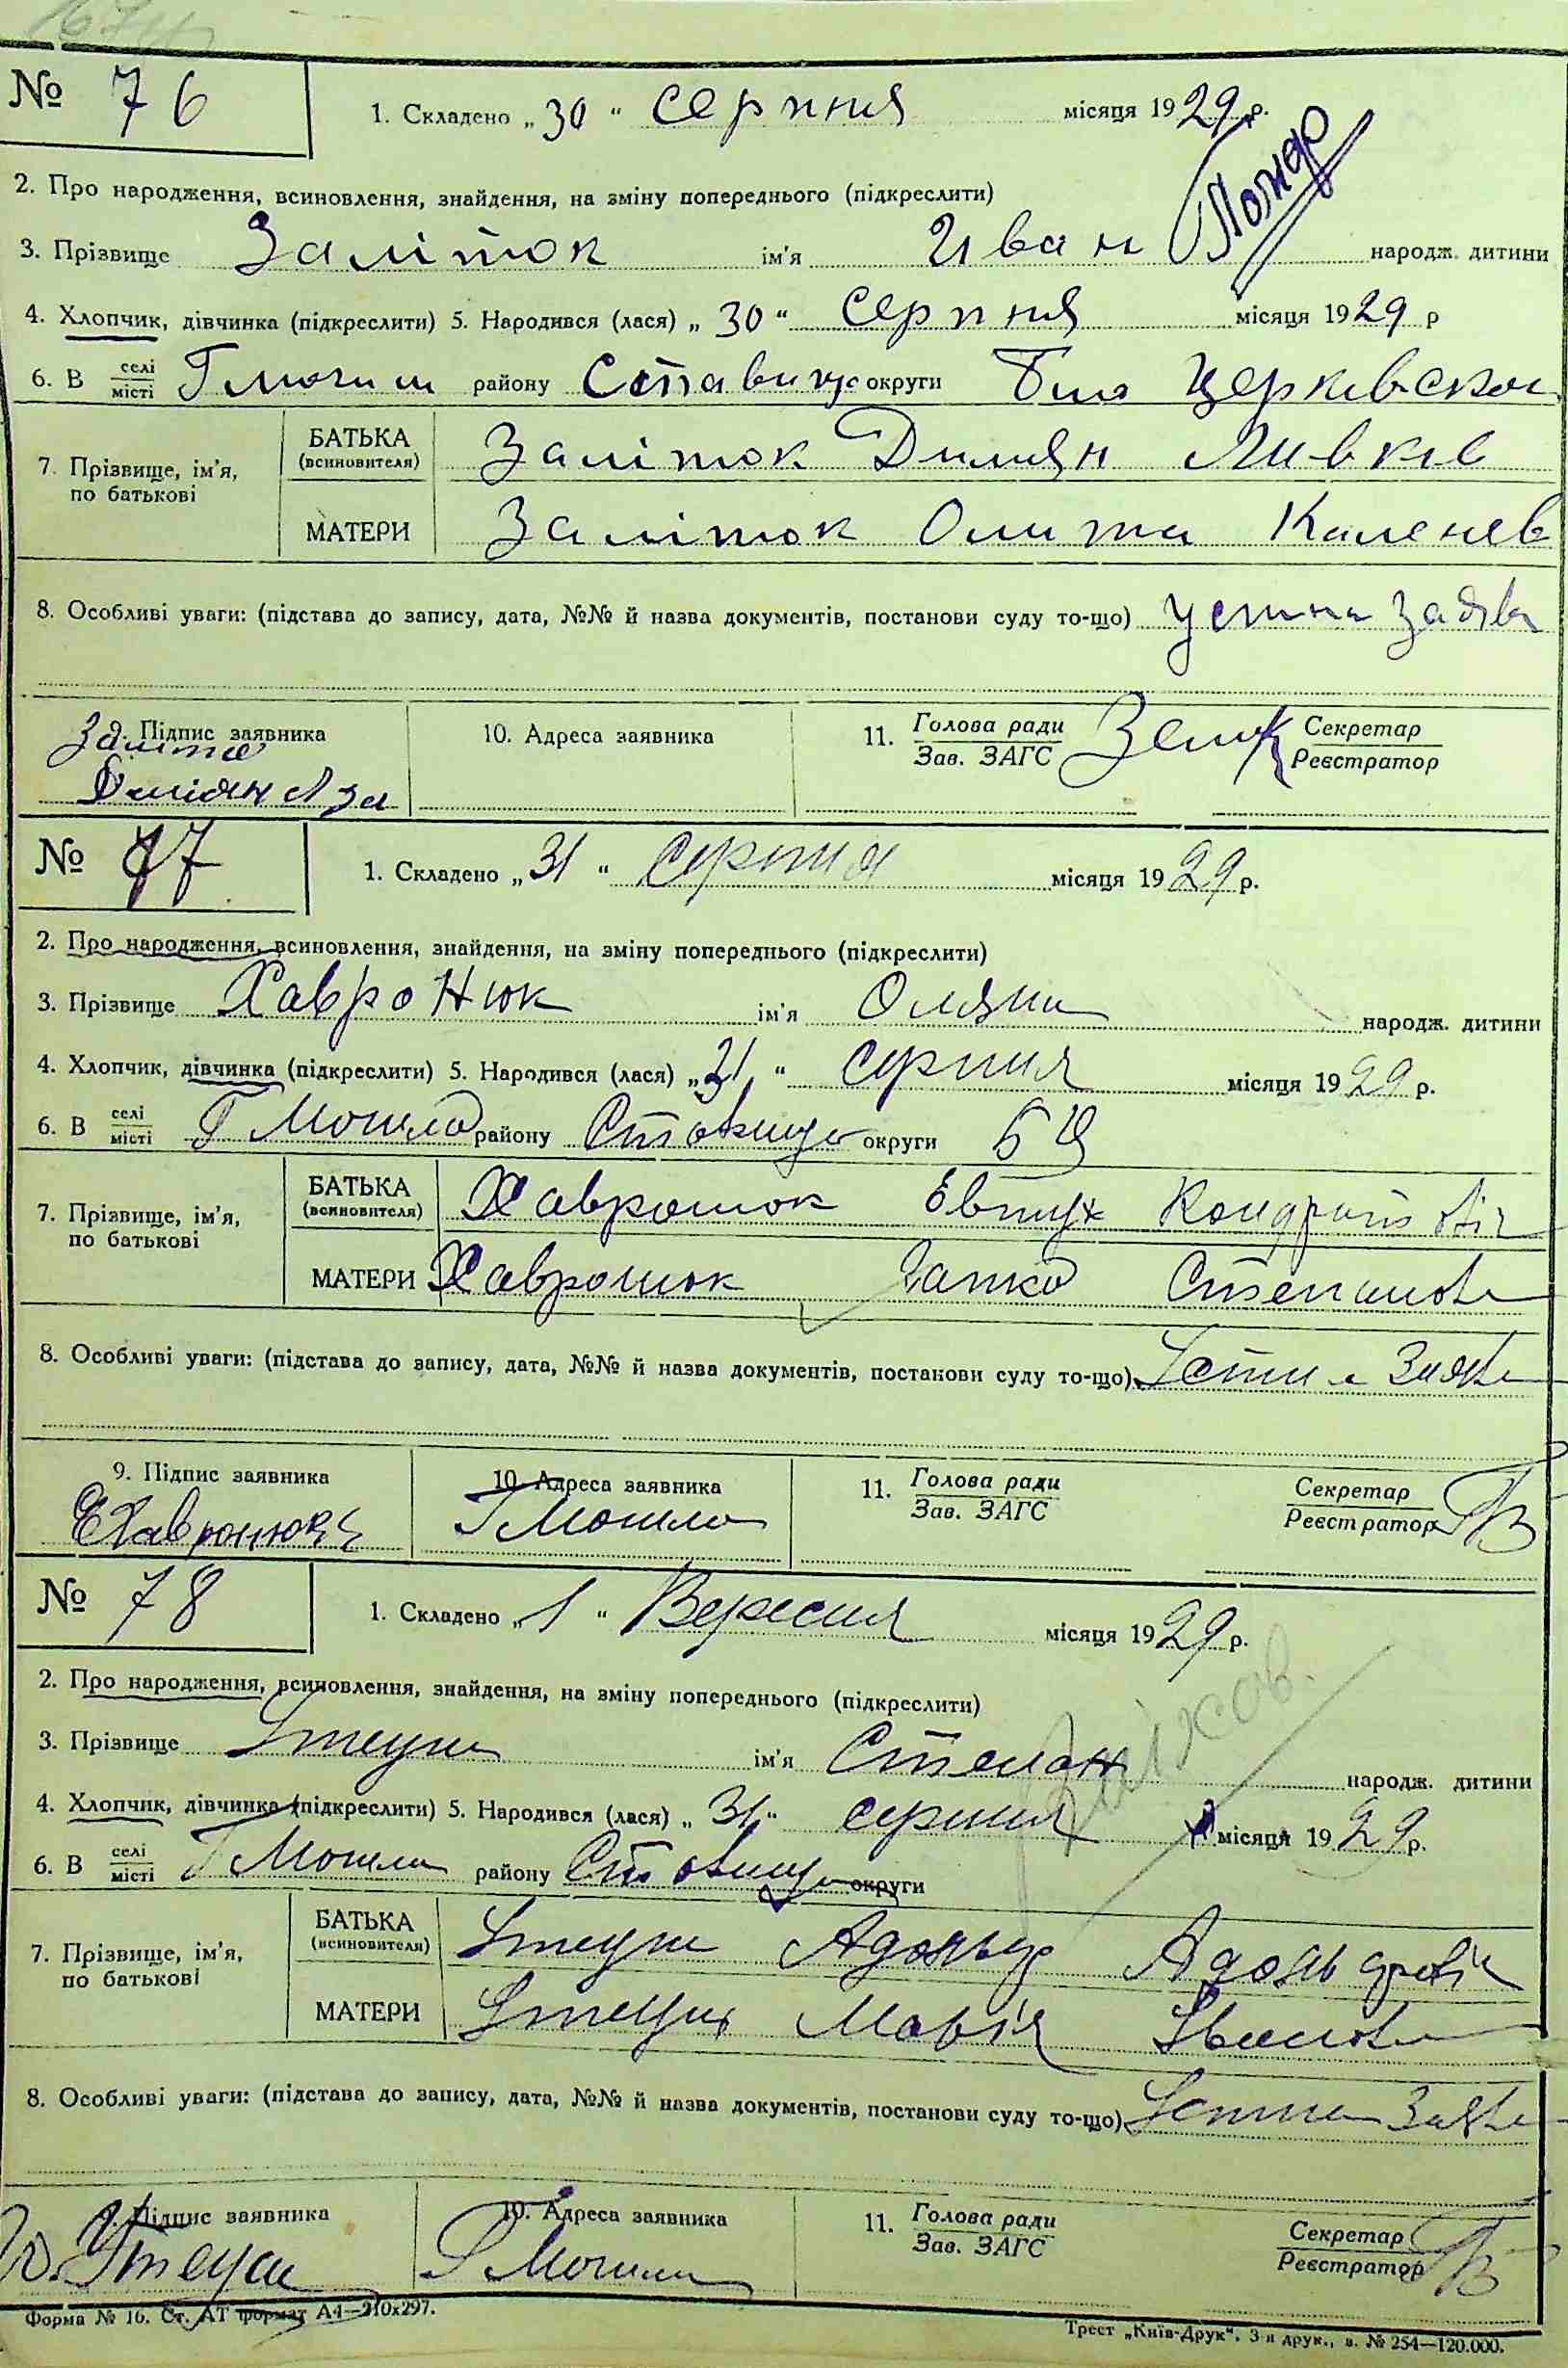 № 76 1. Складено „30“ серпня місяця 1929 р.
2. Про народження, всиновлення, знайдення, на зміну попереднього (підкреслити)
3. Прізвище Заліток ім'я Иван народж. дитини
4. Хлопчик, дівчинка (підкреслити) 5. Народився (лася) „30“ серпня місяця 1929 р
6. В селі/місті району Ставище округи Біла Церківской
7. Прізвище, ім'я, по батькові БАТЬКА (всиновителя) Заліток Димян
МАТЕРИ Заліток
8. Особливі уваги: (підстава до запису, дата, №№ й назва документів, постанови суду то-що) устна заява
9. Підпис заявника 10. Адреса заявника 11. Голова ради Секретар
Зав. ЗАГС Реєстратор
№ 77 1. Складено „31“ серпня місяця 1929 р.
2. Про народження, всиновлення, знайдення, на зміну попереднього (підкреслити)
3. Прізвище Хавронюк ім'я Оляна народж. дитини
4. Хлопчик, дівчинка (підкреслити) 5. Народився (лася) „31“ серпня місяця 1929 р.
6. В селі/місті Г Могила району Ставище округи БЦ
7. Прізвище, ім'я, по батькові БАТЬКА (всиновителя) Хавронюк Евтух Кондратович
МАТЕРИ Хавронюк Гапка Степанов
8. Особливі уваги: (підстава до запису, дата, №№ й назва документів, постанови суду то-що) Устна Заява
9. Підпис заявника 10. Адреса заявника 11. Голова ради Секретар
Зав. ЗАГС Реєстратор
ЕХавронюк Г Могила
№ 78 1. Складено „1“ Вересня місяця 1929 р.
2. Про народження, всиновлення, знайдення, на зміну попереднього (підкреслити)
3. Прізвище ім'я Степан народж. дитини
4. Хлопчик, дівчинка (підкреслити) 5. Народився (лася) „31“ серпня місяця 1929 р.
6. В селі/місті Г Могила району Ставище округи
7. Прізвище, ім'я, по батькові БАТЬКА (всиновителя)
МАТЕРИ Марія Іванов
8. Особливі уваги: (підстава до запису, дата, №№ й назва документів, постанови суду то-що) Устна Заява
9. Підпис заявника 10. Адреса заявника 11. Голова ради Секретар
Зав. ЗАГС Реєстратор
Г Могила
Форма № 16. Ст. АТ формат А4—210х297.
Трест „Київ-Друк“. 3 я друк., з. № 254—120.000.